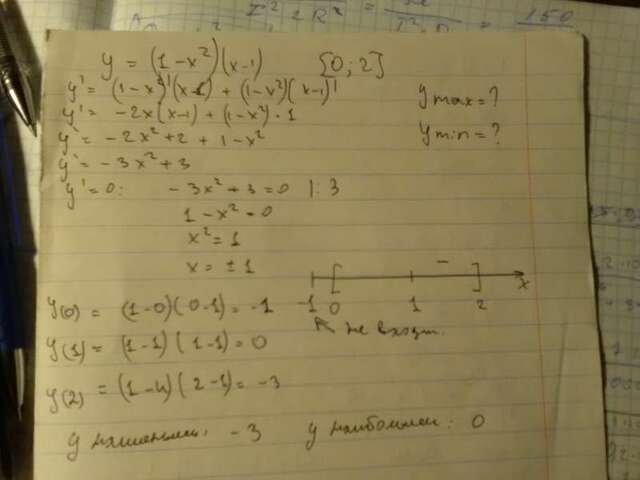 y = (1-x²)(x-1) [0; 2]
y' = (1-x²)'(x-1) + (1-x²)(x-1)'
y' = -2x(x-1) + (1-x²)·1
y max = ?
y' = -2x²+2 + 1-x²
y min = ?
y' = -3x²+3
y' = 0: -3x²+3=0 |:3
1-x²=0
x² = 1
x = ±1
-
-1 0 1 2 x
не входит.
y(0) = (1-0)(0-1) = -1
y(1) = (1-1)(1-1) = 0
y(2) = (1-4)(2-1) = -3
y наименьш: -3 y наибольш: 0